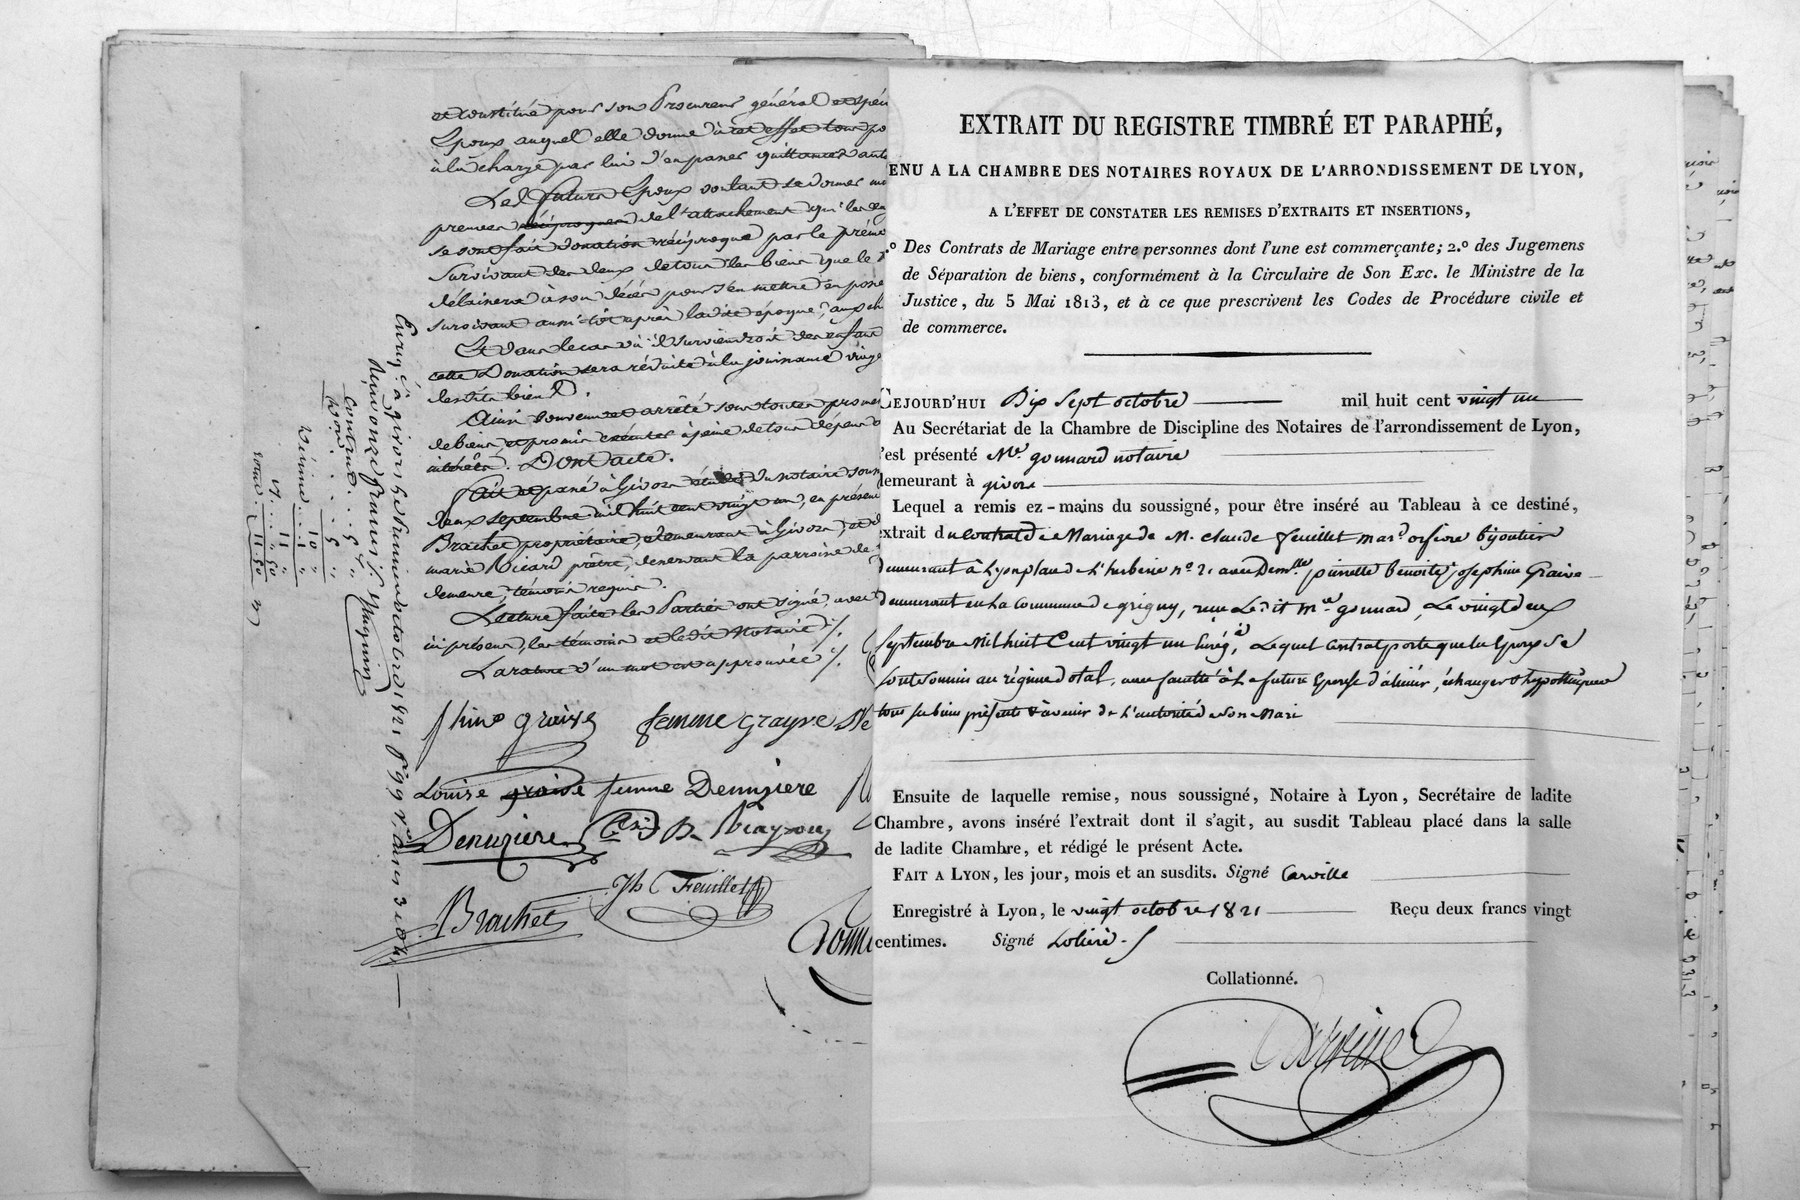 et constitué pour son Procureur général et spéci
Epoux auquel elle donne à cet effet tous po
à la charge par lui d'en passer quittances
Les futurs Epoux voulant se donner
preuves réciproques de l'attachement qu'ils
se sont fait donation réciproque par le
survivant des deux de tous les biens que le
délaissera à son décès pour s'en mettre en poss
survivant aussi-tôt après ladite époque, aux
Et dans le cas où il surviendroit des enfans
cette Donation sera réduite à la jouissance
desdits biens.
Ainsi convenu et arrêté sous toutes
de biens et promis exécuter à peine de tous dépens
intérêts. Dont acte.
Fait et passé à Givors étude du notaire sous
deux septembre mil huit cent vingt un, en présence
Brachet propriétaire, demeurant à Givors, et
marie Ricard prêtre, desservant la parroisse de
demeure, témoins requis.
Lecture faite les Parties ont signé, avec
ici présens, les témoins et ledit Notaire ./.
La rature d'un mot est approuvée ./.
femme grayve
Louise graive femme Denuziere
Denuziere
Jh Feuillet
Brachet
Enreg.é à givors le octobre 1821 f.º 99
contrat . . 5
Donon . . . 5
10
Décime . . 1
11
EXTRAIT DU REGISTRE TIMBRÉ ET PARAPHÉ,
ENU A LA CHAMBRE DES NOTAIRES ROYAUX DE L'ARRONDISSEMENT DE LYON,
A L'EFFET DE CONSTATER LES REMISES D'EXTRAITS ET INSERTIONS,
º Des Contrats de Mariage entre personnes dont l'une est commerçante; 2.º des Jugemens
de Séparation de biens, conformément à la Circulaire de Son Exc. le Ministre de la
Justice, du 5 Mai 1813, et à ce que prescrivent les Codes de Procédure civile et
de commerce.
CEJOURD'HUI Dix Sept octobre mil huit cent vingt un
Au Secrétariat de la Chambre de Discipline des Notaires de l'arrondissement de Lyon,
s'est présenté Me. gonnard notaire
demeurant à givors
Lequel a remis ez-mains du soussigné, pour être inséré au Tableau à ce destiné,
extrait du contrat de Mariage de M. claude feuillet mard. orfevre bijoutier
demeurant à Lyon place de l'herberie nº 2. avec Demlle. pierrette benoite josephine Graive
demeurant en la commune de grigny, reçu Ledit me. gonnard, Le vingt deux
septembre Mil huit Cent vingt un Enrég.é, Lequel contrat porte que les Epoux se
sont soumis au régime dotal, avec faculté à La future Epouse d'aliéner, échanger & hypothéquer
tous ses biens présents & à venir de l'autorité de son Mari
Ensuite de laquelle remise, nous soussigné, Notaire à Lyon, Secrétaire de ladite
Chambre, avons inséré l'extrait dont il s'agit, au susdit Tableau placé dans la salle
de ladite Chambre, et rédigé le présent Acte.
FAIT A LYON, les jour, mois et an susdits. Signé Carville
Enregistré à Lyon, le vingt octobre 1821 Reçu deux francs vingt
centimes. Signé
Collationné.